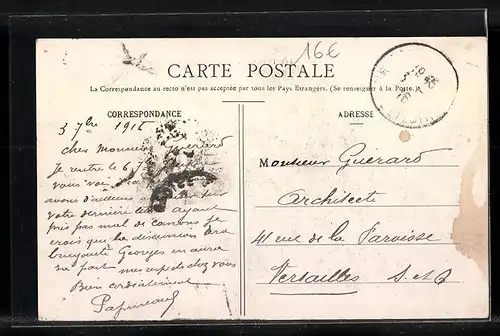 16€
CARTE POSTALE
La Correspondance au recto n'est pas acceptée par tous les Pays Etrangers. (Se renseigner à la Poste.)
CORRESPONDANCE
3 7bre 191
cher Monsieur Guérard
Je rentre le 6 7bre
vous voir
avons d'ailleurs
votre dernière ayant
pris pas mal de canons je
crois que la discussion sera
bruyante Georges en aura
sa part mes respects chez vous
Bien cordialement
ADRESSE
Monsieur Guérard
Architecte
41 rue de la Paroisse
Versailles S. et O